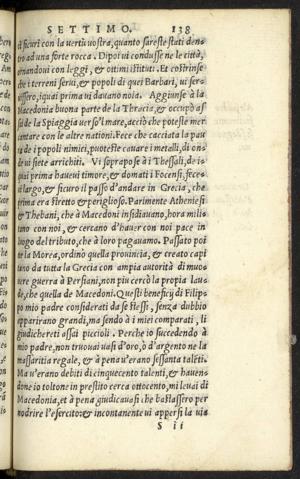 SETTIMO. 138
et sicuri con la uertù uostra, quanto sareste stati den
tro ad una forte rocca. Dipoi ui condusse ne le città,
ornandoui con leggi, & ottimi istituti. Et costrinse
che i terreni serui, & popoli di quei Barbari, ui ser
uissero, i quai prima ui dauano noia. Aggiunse à la
Macedonia buona parte de la Thracia, & occupò as
sai de la Spiaggia uerso'l mare, acciò che poteste mer
cantare con le altre nationi. Fece che cacciata la pau
ra de i popoli nimici, puoteste cauare i metalli, di on
de ui siete arrichiti. Vi soprapose à i Thessali, de i
qui prima haueui timore, & domati i Focensi, fece
ui largo, & sicuro il passo d'andare in Grecia, che
prima era stretto & periglioso. Parimente Atheniesi
& Thebani, che à Macedoni insidiauano, hora mili
tano con noi, & cercano d'hauer con noi pace in
luogo del tributo, che à loro pagauamo. Passato poi
ne la Morea, ordinò quella prouincia, & creato capi
tano da tutta la Grecia con ampia autorità di muo
uere guerra à Persiani, non piu cercò la propia lau
de, che quella de Macedoni. Questi beneficij di Filipo
mio padre considerati da se stessi, senza dubbio
apparirano grandi, ma sendo à i miei comparati, li
giudichereti assai piccioli. Perche io succedendo à
mio padre, non trouai uasi d'oro, ò d'argento ne la
massaritia regale, & à pena u'erano sessanta talēti.
Ma u'erano debiti di cinquecento talenti, & hauen
done io toltone in prestito cerca ottocento, mi leuai di
Macedonia, et à pena giudicaua si che bastassero per
nodrire l'esercito: & incontanente ui appersi la uia
S ii